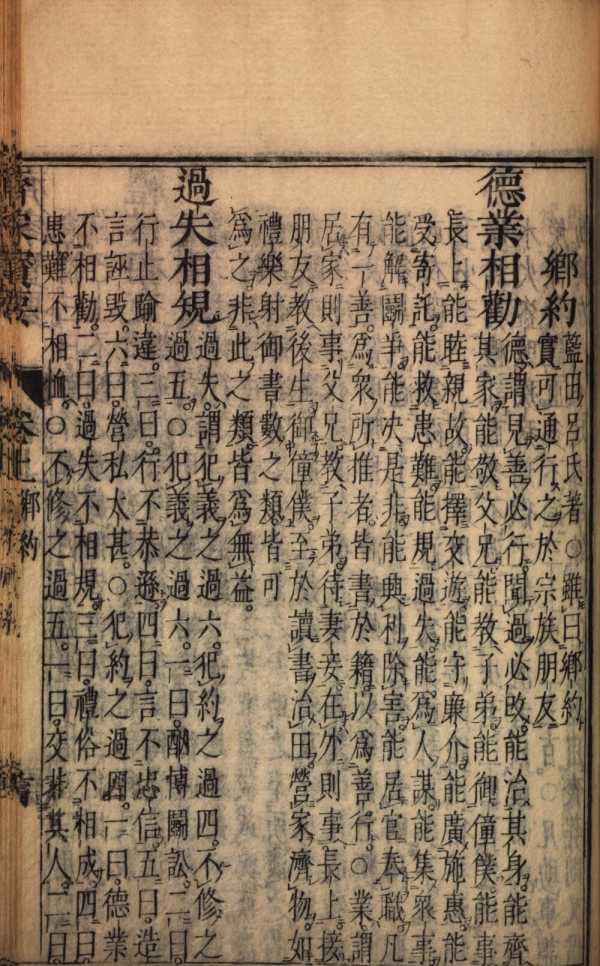 鄉約藍田呂氏著○雖曰鄉約
實可通行之於宗族朋友
德業相勸德謂見善必行聞過必改能治其身能齊
其家能敬父兄能教子弟能御僮僕能事
長上能睦親故能擇交遊能守廉介能廣施惠能
受寄託能救患難能規過失能為人謀能集衆事
能解鬭爭能决是非能興利除害能居官奉職凡
有一善為衆所推者皆書於籍以為善行○業謂
居家則事父兄教子弟待妻妾在外則事長上接
朋友教後生御僮僕至於讀書治田營家濟物如
禮樂射御書數之類皆可
為之非此之類皆為無益
過失相規過失謂犯義之過六犯約之過四不修之
過五○犯義之過六一曰酗博鬭訟二曰
行止踰違三曰行不恭遜四曰言不忠信五曰造
言誣毀六曰營私太甚○犯約之過四一曰德業
不相勸二曰過失不相規三曰禮俗不相成四曰
患難不相恤○不修之過五一曰交非其人二曰
卷七 鄉約